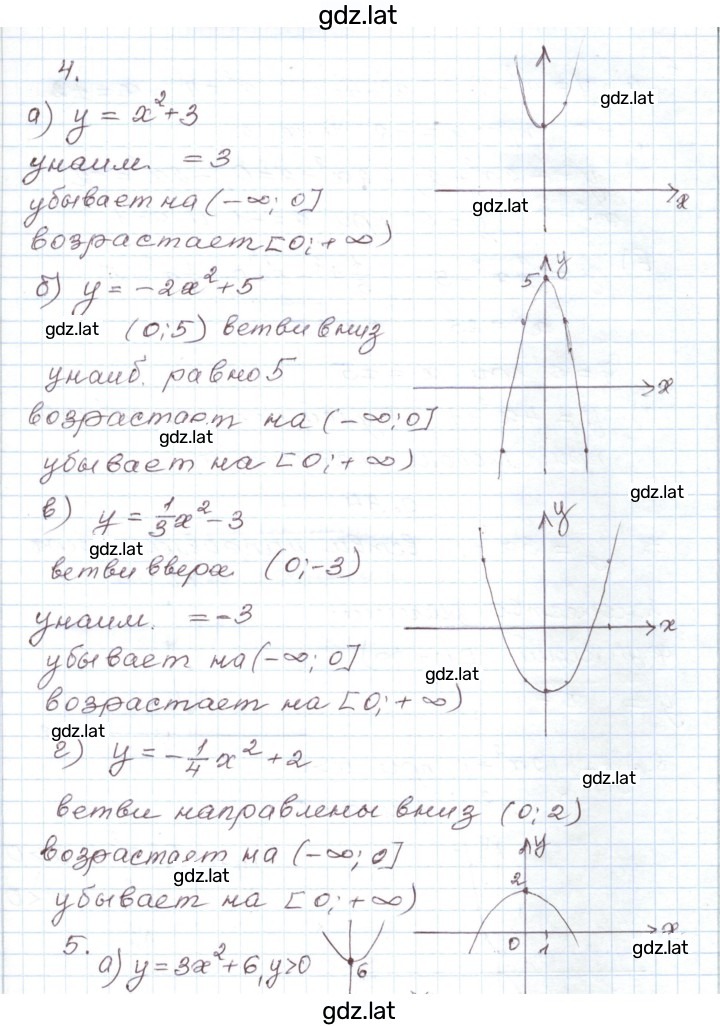 gdz.lat
4.
а) y = x²+3
gdz.lat
yнаим. = 3
убывает на (-∞; 0]
gdz.lat
x
возрастает [0; +∞)
б) y = -2x²+5
5
y
gdz.lat (0;5) ветви вниз
yнаиб. равно 5
x
возрастает на (-∞; 0]
gdz.lat
убывает на [0; +∞)
gdz.lat
в) y = 1/3x² - 3
y
gdz.lat
ветви вверх (0;-3)
yнаим. = -3
x
убывает на (-∞; 0]
gdz.lat
возрастает на [0; +∞)
gdz.lat
г) y = -1/4x² + 2
gdz.lat
ветви направлены вниз (0; 2)
возрастает на (-∞; 0]
y
gdz.lat
2
убывает на [0; +∞)
x
0 1
gdz.lat
5.
а) y = 3x²+6, y>0
6
gdz.lat